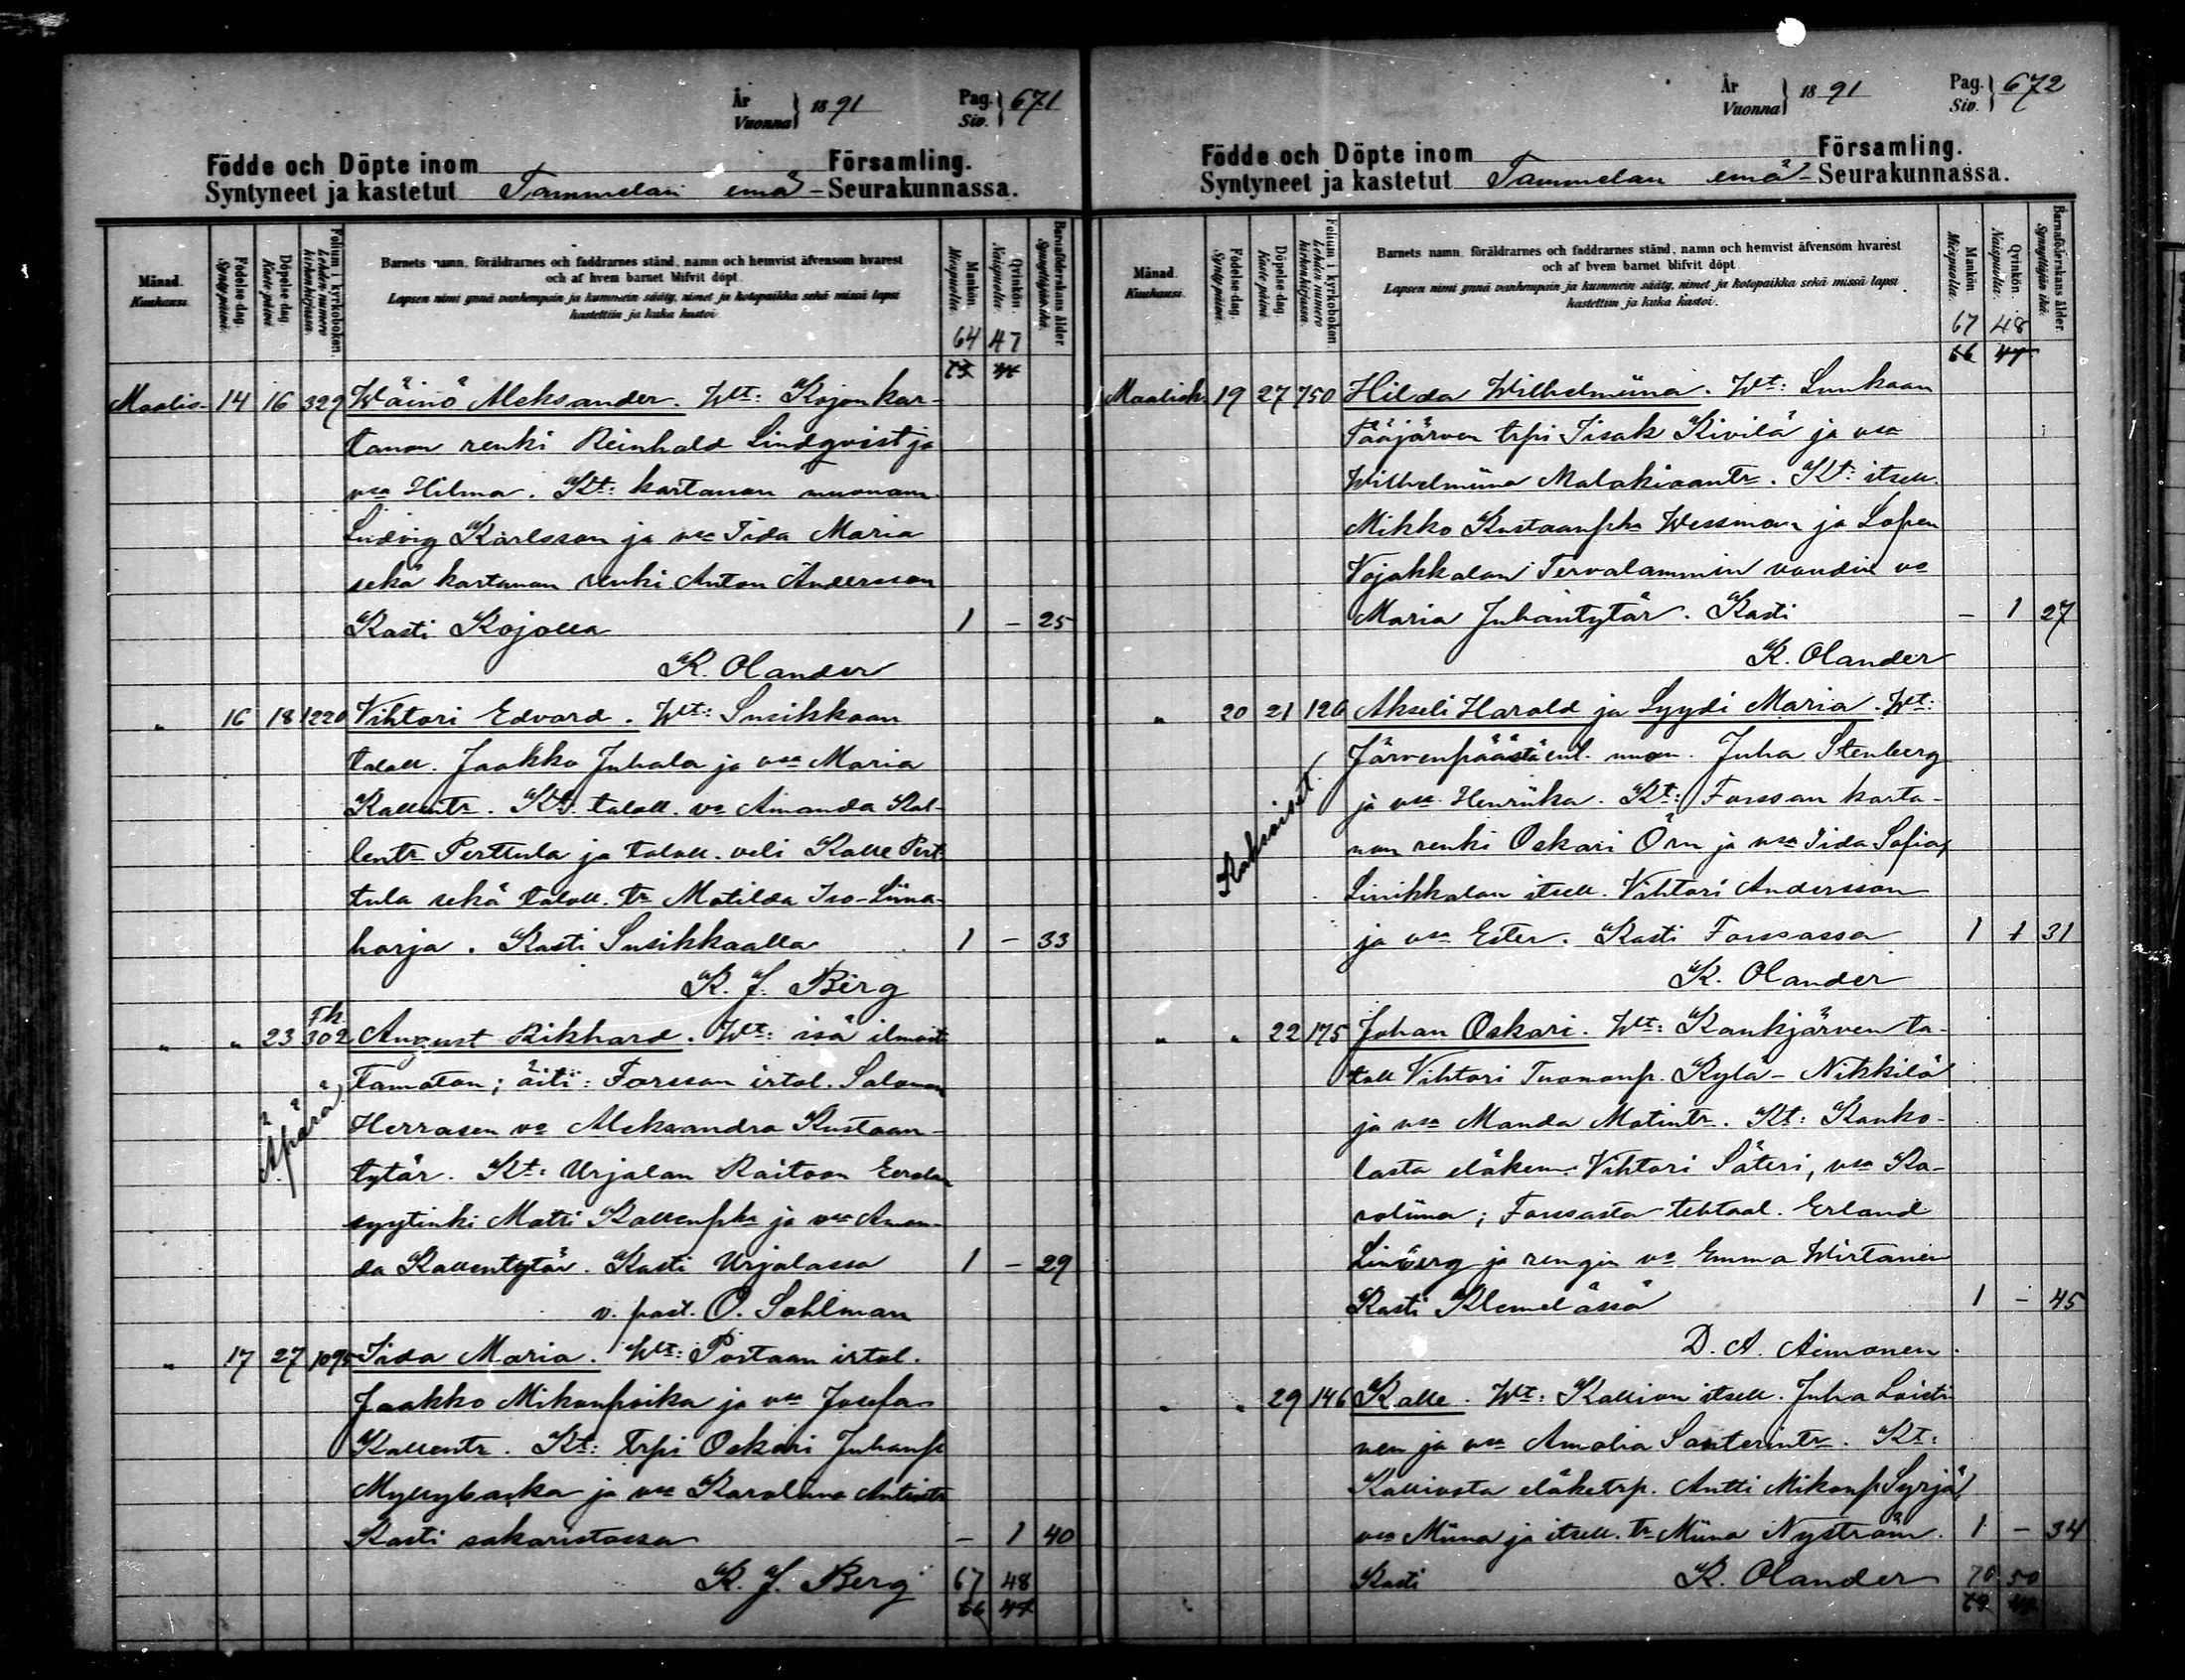 År
Vuonna } 1891
Pag.
Siv. } 671
Födde och Döpte inom Församling.
Syntyneet ja kastetut Tammelan emä- Seurakunnassa.
Månad. Kuukausi.
Födelse-dag. Syntypäivä.
Döpelse-dag. Kaste-päivä.
Folium i kyrkoboken. Lehden numero kirkonkirjassa.
Barnets namn, föräldrarnes och faddrarnes stånd, namn och hemvist äfvensom hvarest
och af hvem barnet blifvit döpt.
Lapsen nimi ynnä vanhempain ja kummein sääty, nimet ja kotopaikka sekä missä lapsi
kastettiin ja kuka kastoi.
Mankön. Miespuolia.
Qvinkön. Naispuolia.
Barnaföderskans ålder. Synnyttäjän ikä.
64 47
Maalis- 14 16 329 Wäinö Aleksander. Wt: Kojon kar-
tanon renki Reinhold Lindqvist ja
vsa Hilma. Kt: kartanon muonam.
Ludvig Karlsson ja vsa Iida Maria
sekä kartanon renki Anton Andersson
Kasti Kojolla 1 - 25
K. Olander
" 16 18 1220 Vihtori Edvard. Wt: Susikkaan
taloll. Jaakko Juhala ja vsa Maria
Kallentr. Kt: taloll. vo Amanda Kal-
lentr Perttula ja taloll. veli Kalle Pert-
tula sekä taloll. tr Matilda Iso-Liina-
harja. Kasti Susikkaalla 1 - 33
K. J. Berg
Fk.
" " 23 302 August Rikhard. Wt: isä ilmoit-
Äpärä
tamaton; äiti: Forssan irtol. Salomon
Herrasen vo Aleksandra Kustaan-
tytär. Kt: Urjalan Raitoon Eerolan
syytinki Matti Kallenpka ja vsa Aman-
da Kallentytär. Kasti Urjalassa 1 - 29
v. past. O. Sahlman
" 17 27 1095 Iida Maria. Wt: Portaan irtol.
Jaakko Mikonpoika ja vsa Josefa
Kallentr. Kt: trpi Oskari Juhanp
Myllybacka ja vsa Karoliina Antintr
Kasti sakaristossa - 1 40
K. J. Berg 67 48
66 47
År
Vuonna } 1891
Pag.
Siv. } 672
Födde och Döpte inom Församling.
Syntyneet ja kastetut Tammelan emä- Seurakunnassa.
Månad. Kuukausi.
Födelse-dag. Syntypäivä.
Döpelse-dag. Kaste-päivä.
Folium i kyrkoboken. Lehden numero kirkonkirjassa.
Barnets namn, föräldrarnes och faddrarnes stånd, namn och hemvist äfvensom hvarest
och af hvem barnet blifvit döpt.
Lapsen nimi ynnä vanhempain ja kummein sääty, nimet ja kotopaikka sekä missä lapsi
kastettiin ja kuka kastoi.
Mankön. Miespuolia.
Qvinkön. Naispuolia.
Barnaföderskans ålder. Synnyttäjän ikä.
67 48
66 47
Maalisk. 19 27 750 Hilda Wilhelmiina. Wt: Lunkaan
Pääjärven trpi Iisak Kivilä ja vsa
Wilhelmiina Malakiaantr. Kt: itsell.
Mikko Kustaanpka Wessman ja Lopen
Vojakkalan Tervalammin voudin vo
Maria Juhantytär. Kasti - 1 27
K. Olander
" 20 21 126 Akseli Harald ja Lyydi Maria. Wt:
Kaksoiset.
Järvenpäästä ent. muon. Juha Stenberg
ja vsa Henriika. Kt: Forssan karta-
non renki Oskari Örn ja vsa Iida Sofia,
Linikkalan itsell. Vihtori Andersson
ja vsa Ester. Kasti Forssassa 1 1 31
K. Olander
" " 22 175 Johan Oskari. Wt: Kaukjärven ta-
loll Vihtori Tuomonp. Kylä-Nikkilä
ja vsa Manda Matintr. Kt: Kauko-
lasta eläkem. Vihtori Säteri, vsa Ka-
roliina; Forssasta tehtaal. Erland
Linberg ja rengin vo Emma Wirtanen
Kasti Klemelässä 1 - 45
D. A. Aimonen.
" " 29 146 Kalle. Wt: Kallion itsell. Juha Laisti-
nen ja vsa Amalia Santerintr. Kt:
Kalliosta eläketrp. Antti Mikonp. Syrjä,
vsa Miina ja itsell. tr Miina Nyström. 1 - 34
Kasti K. Olander 70 50